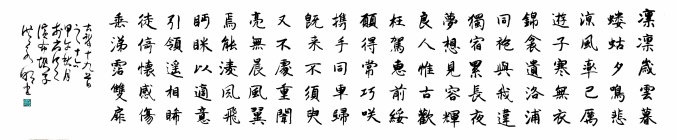 凜凜歲雲暮
螻蛄夕鳴悲
涼風率已厲
遊子寒無衣
錦衾遺洛浦
同袍與我違
獨宿累長夜
夢想見容輝
良人惟古歡
枉駕惠前綏
願得常巧咲
攜手同車歸
既來不須臾
又不處重闈
亮無晨風翼
焉能凌風飛
眄睞以適意
引領遙相睎
徒倚懷感傷
垂涕霑雙扉
古詩十九首
之十六